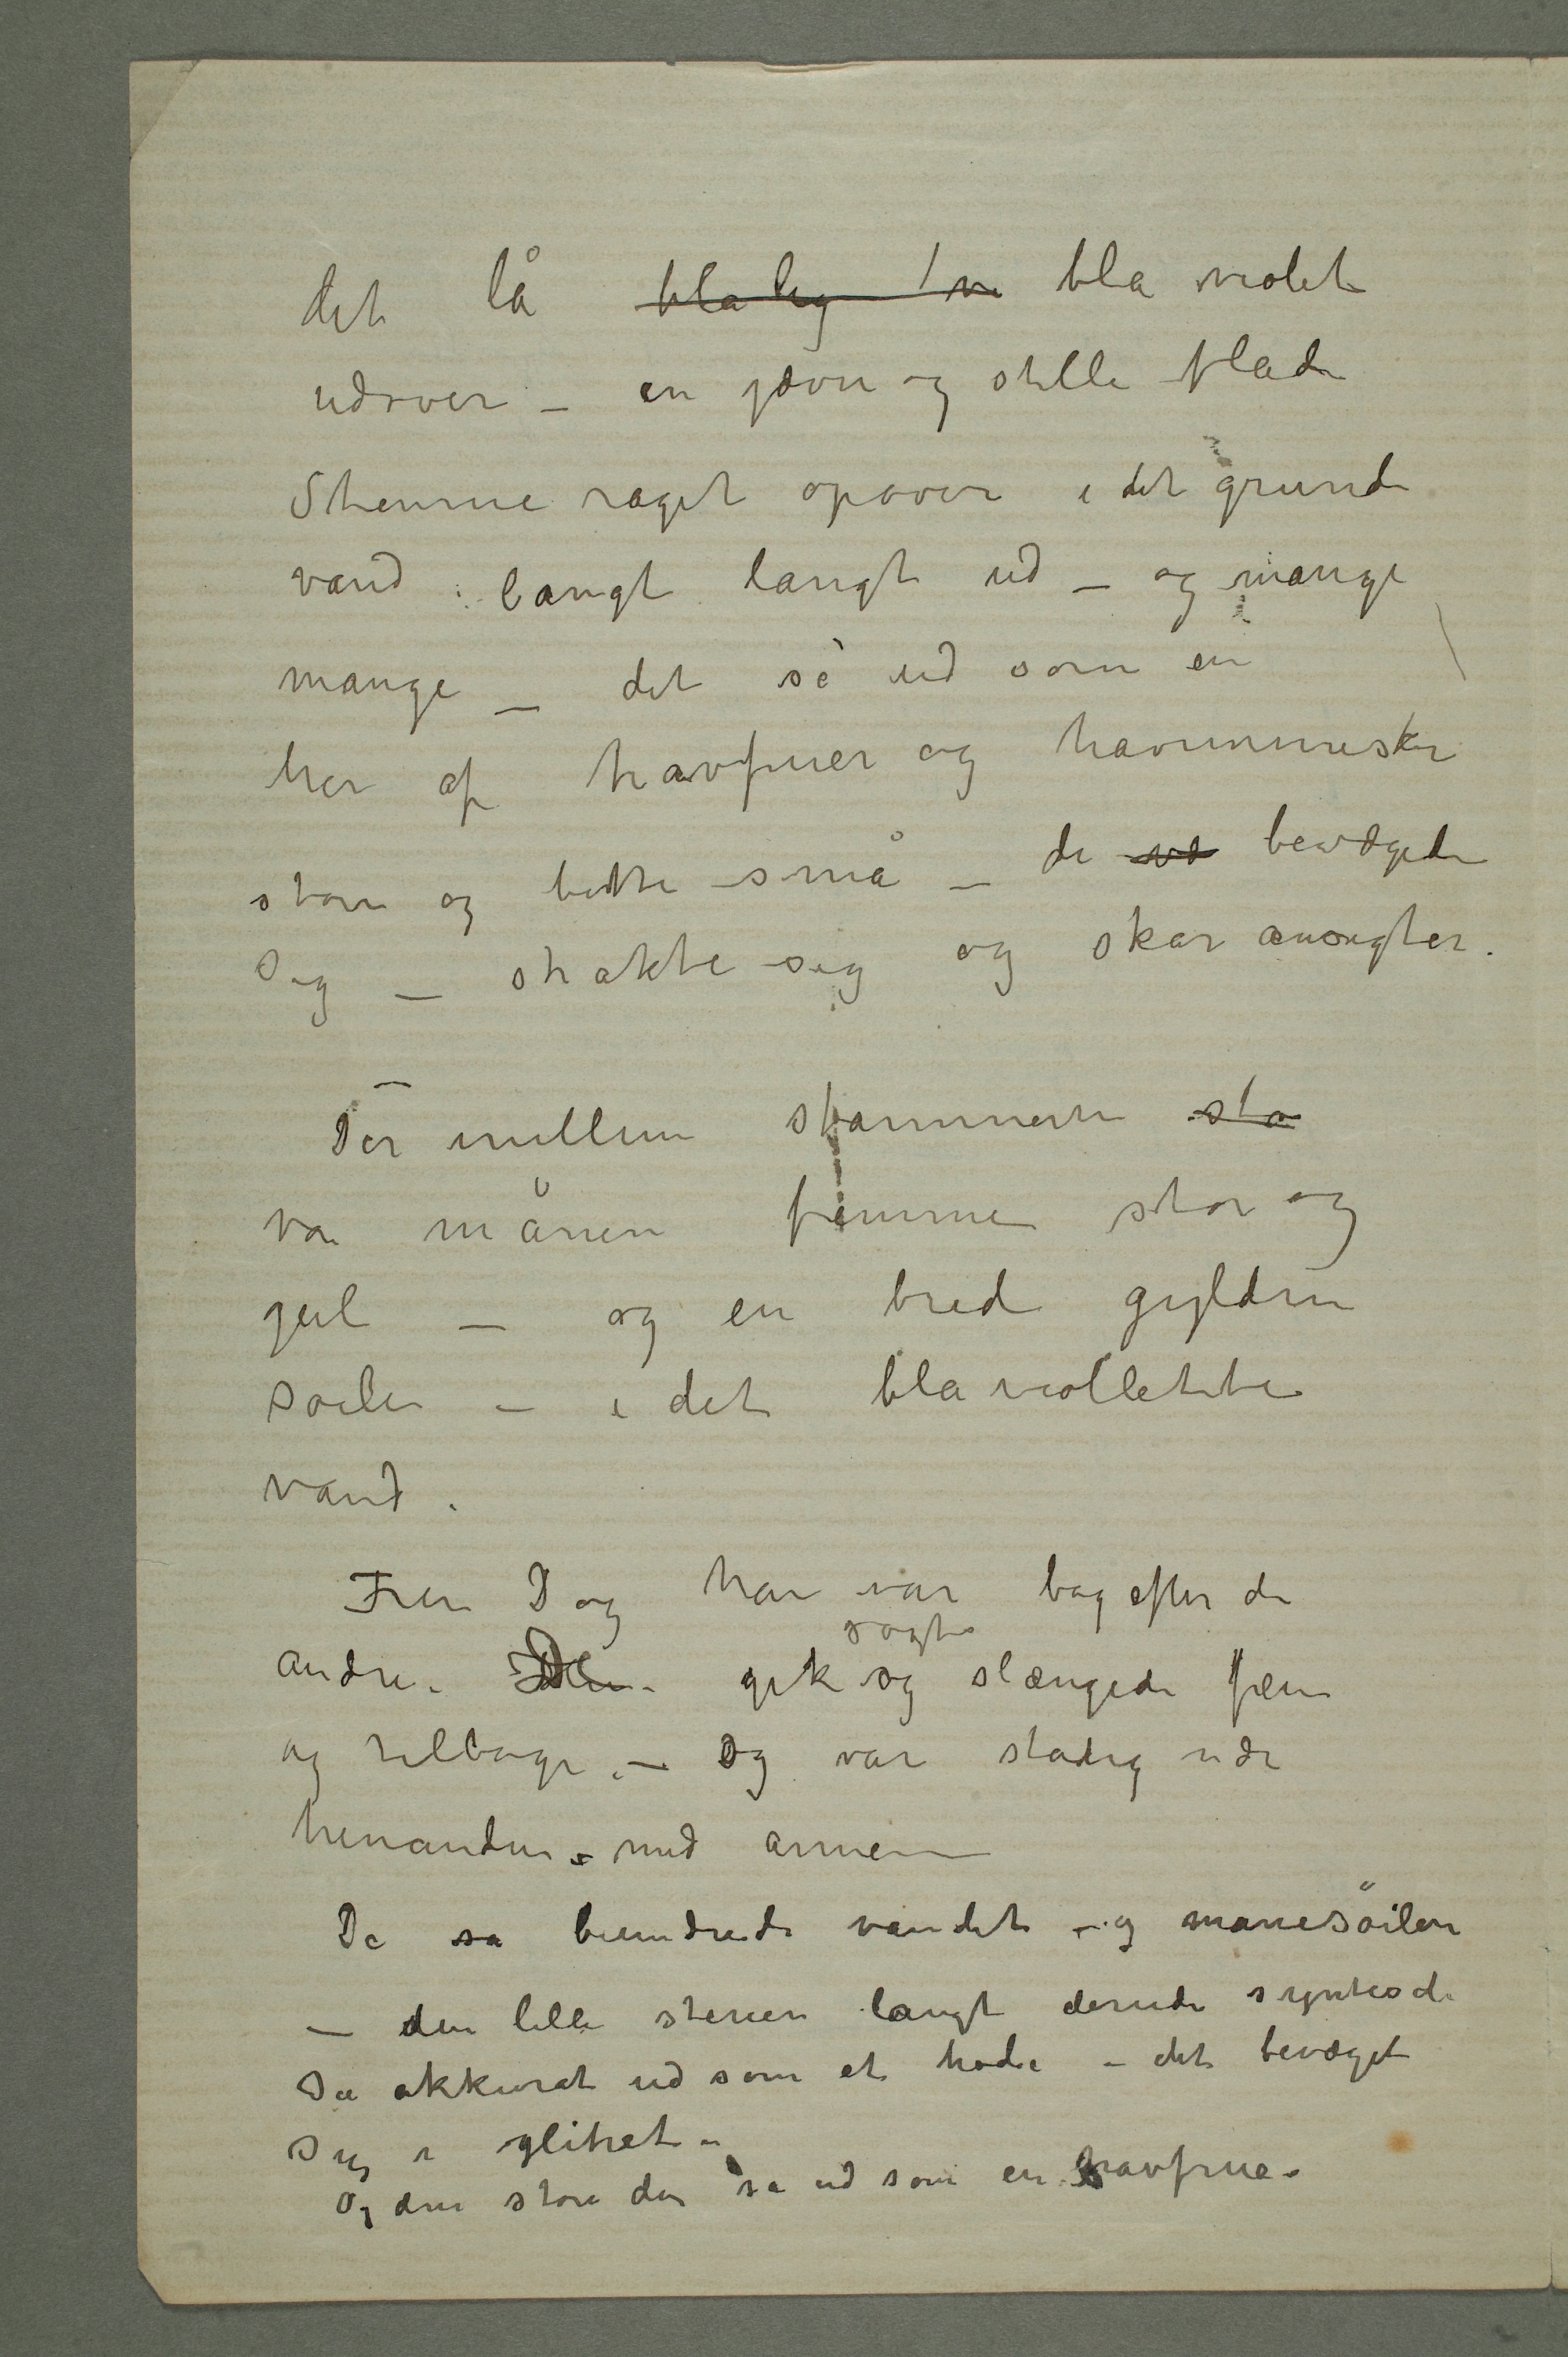 det lå blålig / vi blå violet
udover – en jævn og stille flade
Stenene raget opover i det grunde
vand langt langt ud – og mange
mange – det så ud som en
hær af havfruer og havmennesker
store og bitte små – de væ bevægede
sig – strakte sig og skar ansigter.
Der mellem stammerne sto
var månen fremme stor og
gul – og en bred gylden
søile – i det blåviolette
vand.
Fru D og han var bag efter de
sagte
andre. De gik og slængede frem
og tilbage. – Og var stadig nær
henanden – med armene
De så beundrede vandet og månesøilen
– den lille stenen langt derude syntes de
så akkurat ud som et hode – det bevæget
sig i glitret –
Og den store den så ud som en havfrue.